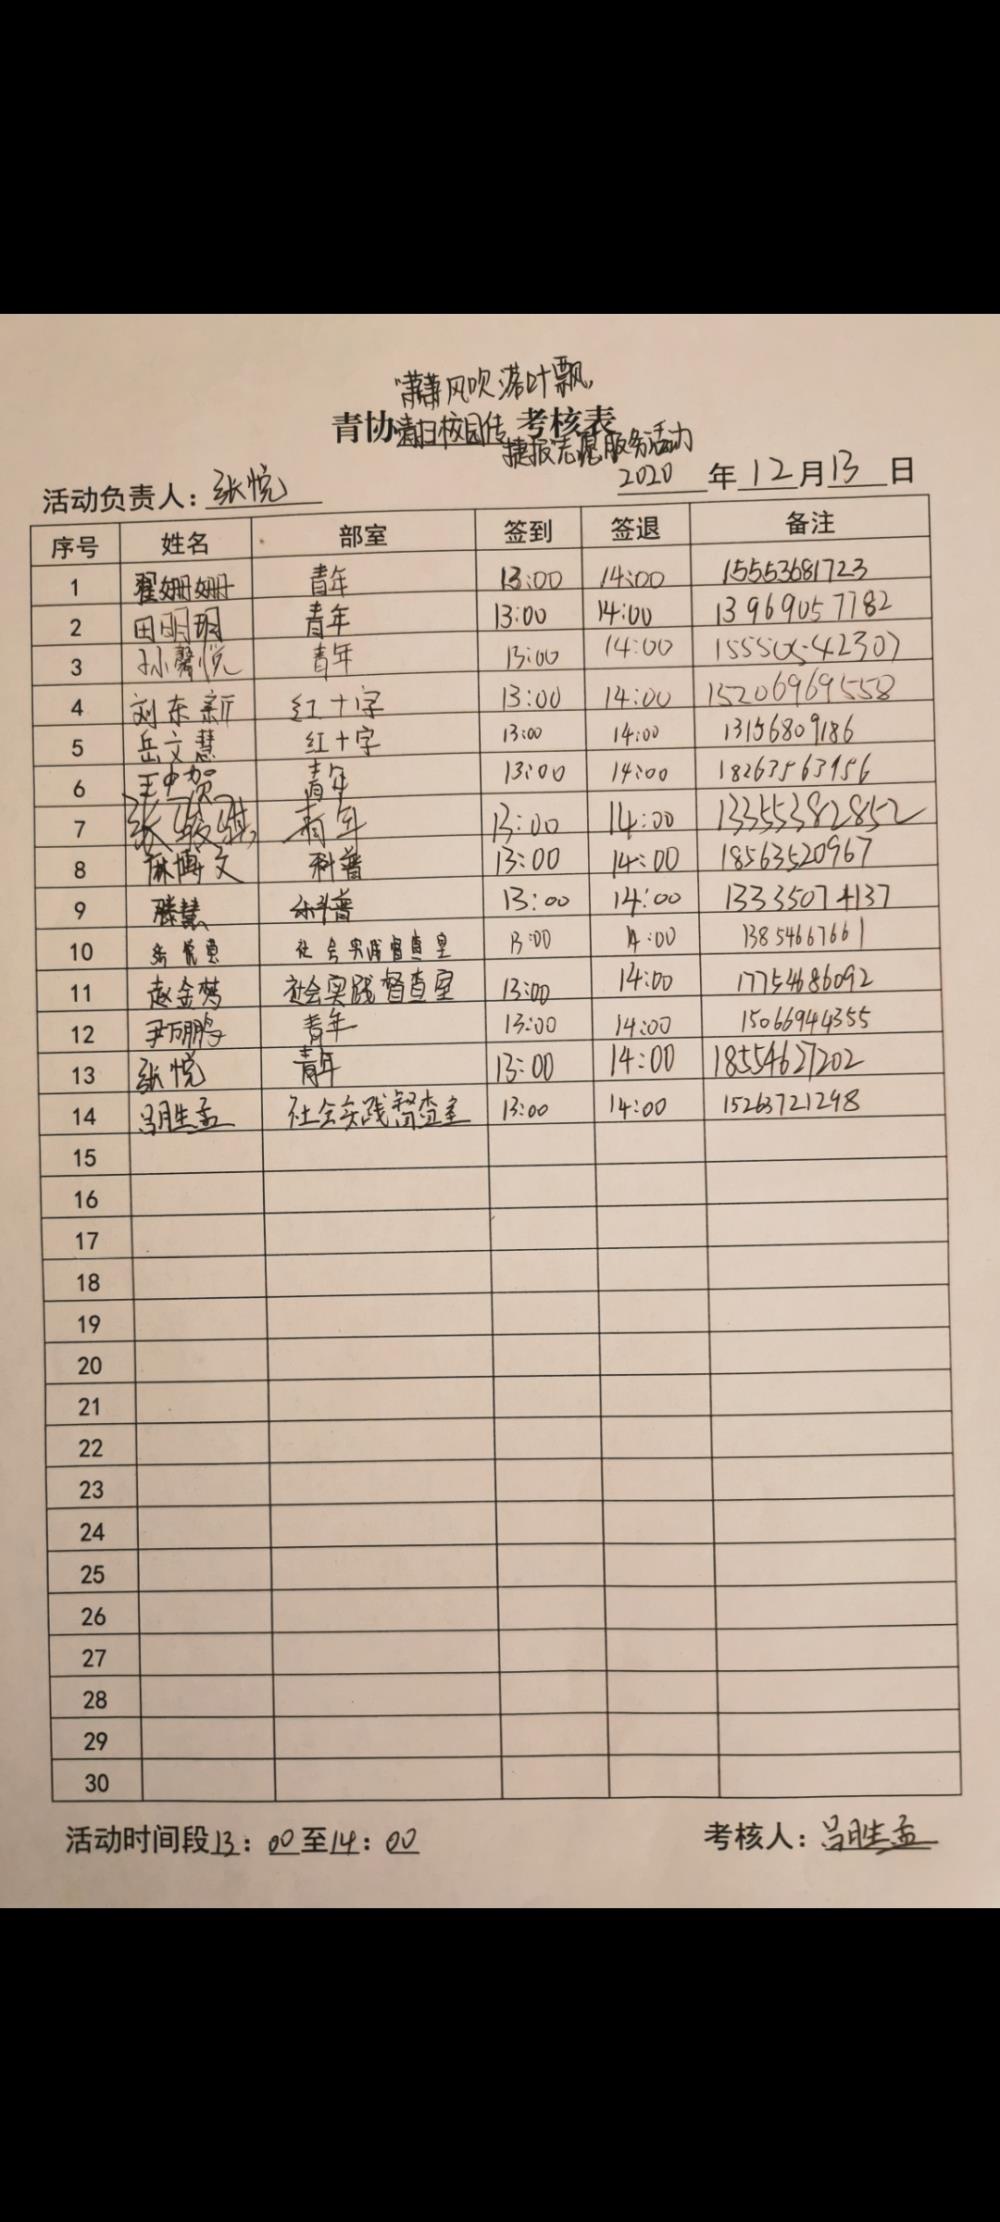 “萧萧风吹落叶飘,
青协清扫校园传 考核表
捷报志愿服务活动
活动负责人：张悦 2020 年 12 月 13 日
序号 姓名 部室 签到 签退 备注
1 翟姗姗 青年 13:00 14:00 15553681723
2 田明玥 青年 13:00 14:00 13969057782
3 孙馨悦 青年 13:00 14:00
4 刘东新 红十字 13:00 14:00 15206969558
5 岳文慧 红十字 13:00 14:00 13156809186
6 王中贺 青年 13:00 14:00 18263563956
7 青年 13:00 14:00 13355382852
8 林博文 科普 13:00 14:00 18563520967
9 滕慧 科普 13:00 14:00 13335074137
10 社会实践督查室 13:00 14:00 13854667661
11 赵金梦 社会实践督查室 13:00 14:00 17754686092
12 尹万鹏 青年 13:00 14:00 15066944355
13 张悦 青年 13:00 14:00 18554627202
14 吕胜孟 社会实践督查室 13:00 14:00 15263721298
15
16
17
18
19
20
21
22
23
24
25
26
27
28
29
30
活动时间段13：00至14：00 考核人：吕胜孟